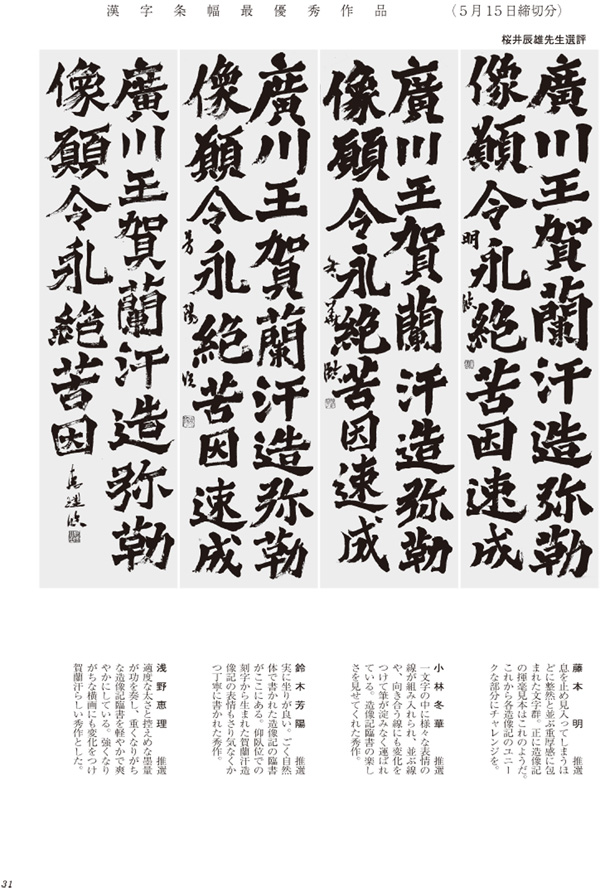 漢字条幅最優秀作品　（５月１５日締切分）
桜井辰雄先生選評
廣川王賀蘭汗造弥勒
像願令永絶苦因速成
明臨
廣川王賀蘭汗造弥勒
像願令永絶苦因速成
冬華臨
廣川王賀蘭汗造弥勒
像願令永絶苦因速成
芳陽臨
廣川王賀蘭汗造弥勒
像願令永絶苦因
恵理臨
藤本　明　推選
息を止め見入ってしまうほ
どに整然と並ぶ重厚感に包
まれた文字群。正に造像記
の揮毫見本はこれのようだ。
これから各造像記のユニー
クな部分にチャレンジを。
小林冬華　推選
一文字の中に様々な表情の
線が組み入れられ、並ぶ線
や、向き合う線にも変化を
つけて筆が淀みなく運ばれ
ている。造像記臨書の楽し
さを見せてくれた秀作。
鈴木芳陽　推選
実に坐りが良い。ごく自然
体で書かれた造像記の臨書
がここにある。仰臥位での
刻字から生まれた賀蘭汗造
像記の表情もさり気なくか
つ丁寧に書かれた秀作。
浅野恵理　推選
適度な太さと控えめな墨量
が功を奏し、重くなりがち
な造像記臨書を軽やかで爽
やかにしている。強くなり
がちな横画にも変化をつけ
賀蘭汗らしい秀作とした。
31